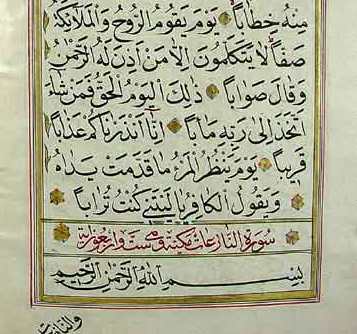 مِنْهُ خِطَابًا يَوْمَ يَقُومُ الرُّوحُ وَالْمَلَائِكَةُ
صَفًّا لَا يَتَكَلَّمُونَ اِلَّا مَنْ اَذِنَ لَهُ الرَّحْمٰنُ
وَقَالَ صَوَابًا ذٰلِكَ الْيَوْمُ الْحَقُّ فَمَنْ شَاءَ
اتَّخَذَ اِلٰى رَبِّهِ مَاٰبًا اِنَّا اَنْذَرْنَاكُمْ عَذَابًا
قَرِيبًا يَوْمَ يَنْظُرُ الْمَرْءُ مَا قَدَّمَتْ يَدَاهُ
وَيَقُولُ الْكَافِرُ يَا لَيْتَنِي كُنْتُ تُرَابًا
سورة النازعات مكية وهي ست واربعون اية
بِسْمِ اللّٰهِ الرَّحْمٰنِ الرَّحِيمِ
والنازعات